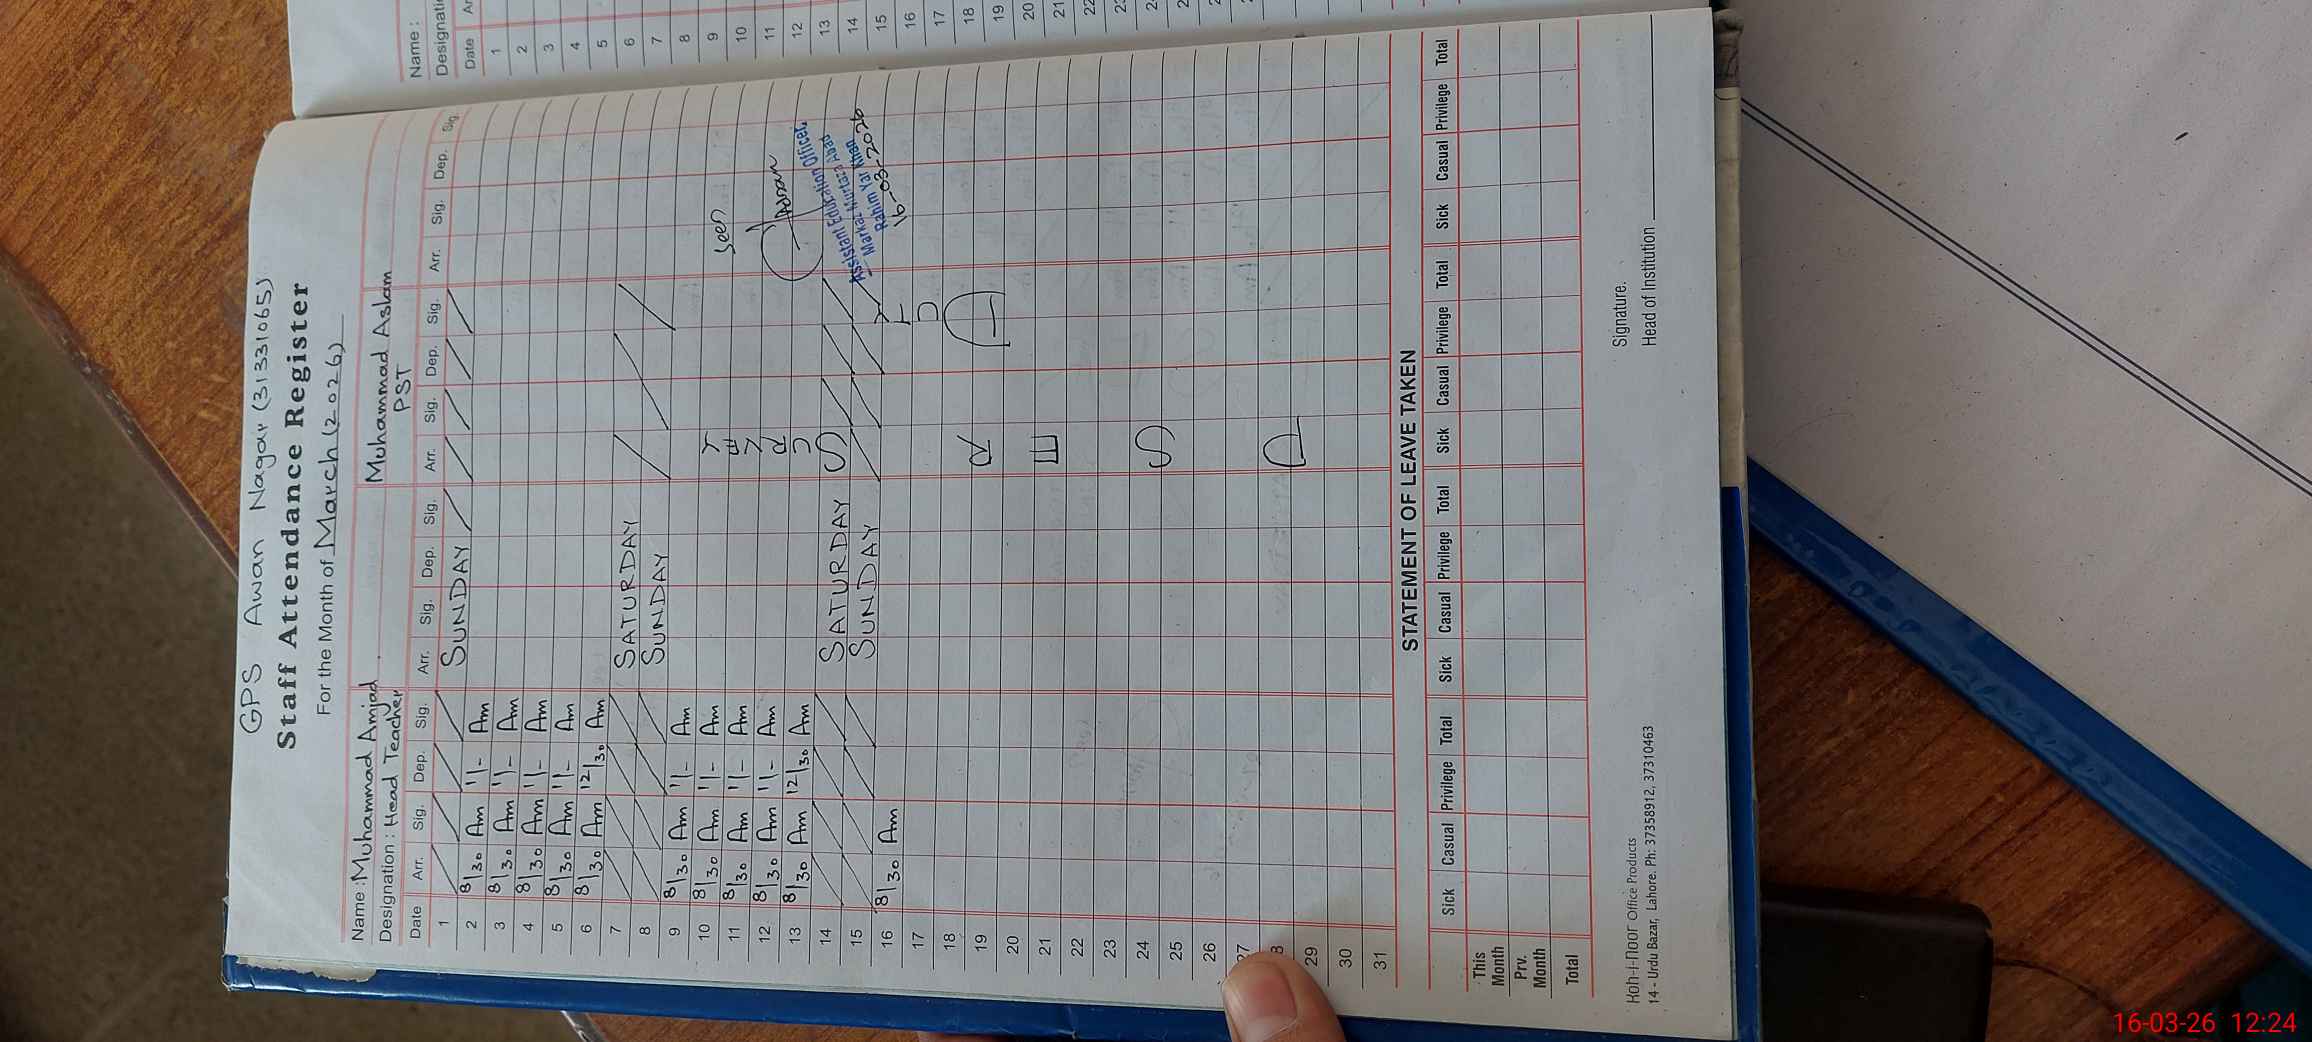 GPS Awan Nagar (31331065)
Staff Attendance Register
For the Month of March (2026)
Name : Muhammad Amjad
Muhammad Aslam
Designation : Head Teacher
PST
Date Arr. Sig. Dep. Sig. Arr. Sig. Dep. Sig. Arr. Sig. Dep. Sig. Arr. Sig. Dep. Sig.
1 SUNDAY
2 8/30 Am 11- Am
3 8/30 Am 11- Am
4 8/30 Am 11- Am
5 8/30 Am 11- Am
6 8/30 Am 12/30 Am
7 SATURDAY
8 SUNDAY
9 8/30 Am 11- Am
10 8/30 Am 11- Am
11 8/30 Am 11- Am
12 8/30 Am 11- Am
13 8/30 Am 12/30 Am
14 SATURDAY
15 SUNDAY
16 8/30 Am
17
18
19
20
21
22
23
24
25
26
27
8
29
30
31
Seen
Assistant Education Officer,
Markaz Murtaza Abad
Rahim Yar Khan
16-03-2026
STATEMENT OF LEAVE TAKEN
Sick Casual Privilege Total Sick Casual Privilege Total Sick Casual Privilege Total Sick Casual Privilege Total
This Month
Prv. Month
Total
Signature.
Head of Institution
Koh-i-Noor Office Products
14 - Urdu Bazar, Lahore. Ph: 37358912, 37310463
Name :
Date
1
2
3
4
5
6
7
8
9
10
11
12
13
14
15
16
17
18
19
20
21
22
16-03-26 12:24